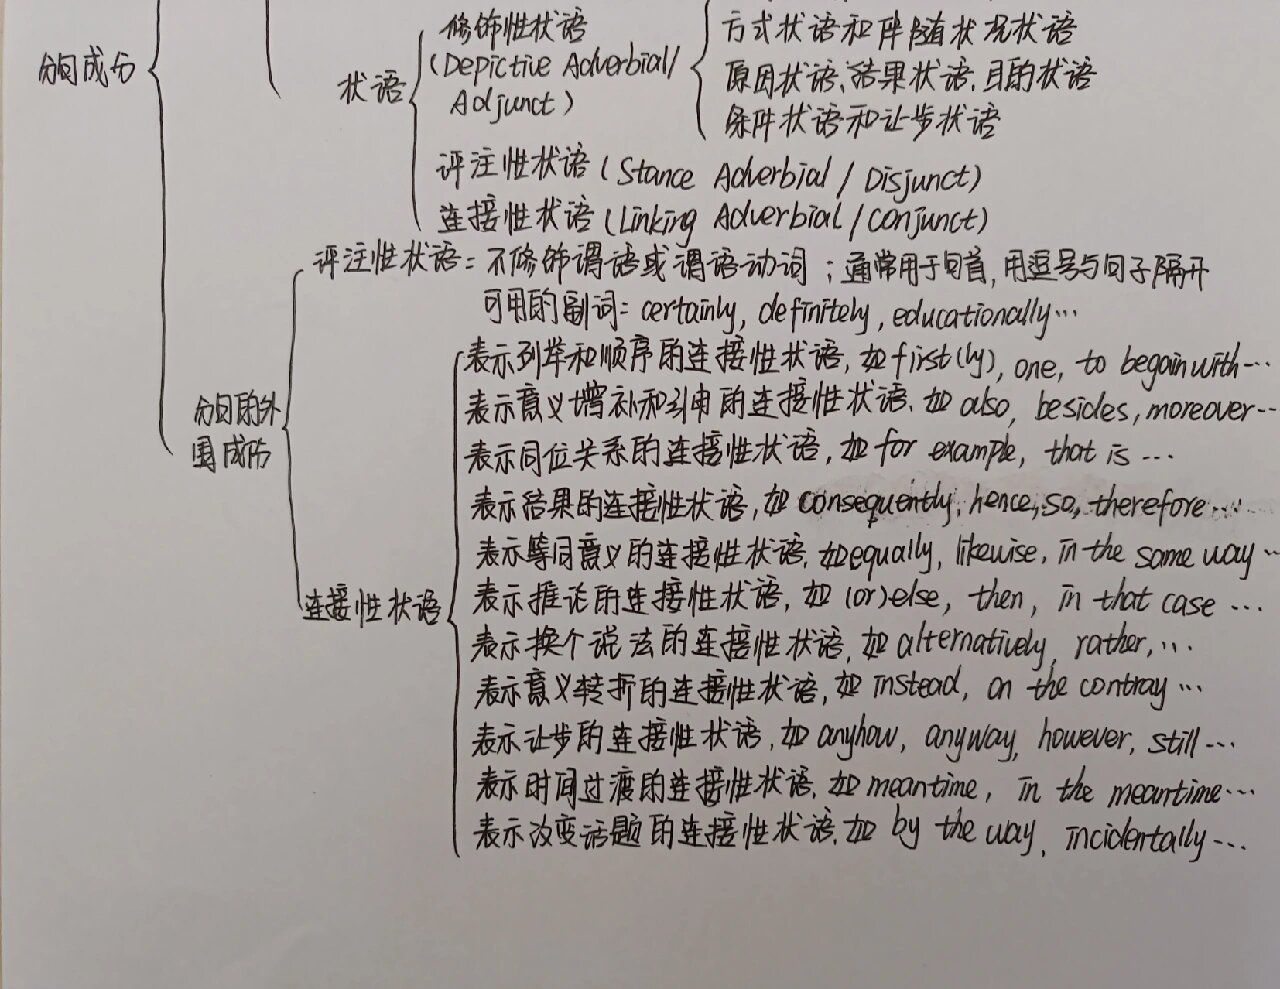 修饰性状语
方式状语和伴随状况状语
分句成分
状语
(Depictive Adverbial/
Adjunct)
原因状语、结果状语、目的状语
条件状语和让步状语
评注性状语(Stance Adverbial / Disjunct)
连接性状语(Linking Adverbial / conjunct)
评注性状语：不修饰谓语或谓语动词；通常用于句首，用逗号与句子隔开
可用的副词：certainly, definitely, educationally…
分句的外
围成分
连接性状语
表示列举和顺序的连接性状语，如first(ly), one, to begain with…
表示意义增补和引申的连接性状语，如also, besides, moreover…
表示同位关系的连接性状语，如for example, that is …
表示结果的连接性状语，如consequently, hence, so, therefore…
表示等同意义的连接性状语，如equally, likewise, in the same way…
表示推论的连接性状语，如(or)else, then, in that case …
表示换个说法的连接性状语，如alternatively, rather, …
表示意义转折的连接性状语，如instead, on the contray …
表示让步的连接性状语，如anyhow, anyway, however, still…
表示时间过渡的连接性状语，如meantime, in the meantime…
表示改变话题的连接性状语，如by the way, incidentally…